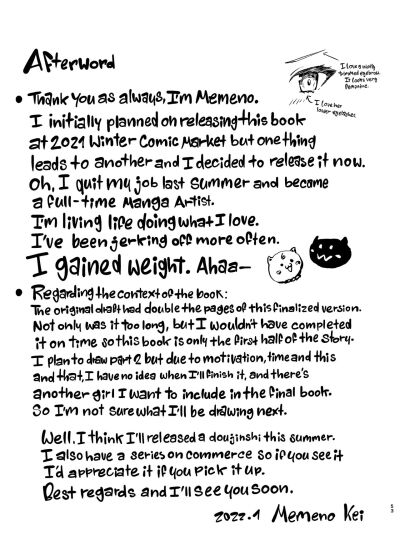 Afterword
I love a nicely
trimmed eyebrow.
It looks very
feminine.
I love her
lower eyelashes.
• Thank you as always, I'm Memeno.
I initially planned on releasing this book
at 2021 Winter Comic Market but one thing
leads to another and I decided to release it now.
Oh, I quit my job last summer and became
a full-time Manga Artist.
I'm living life doing what I love.
I've been jerking off more often.
I gained weight. Ahaa—
• Regarding the context of the book:
The original draft had double the pages of this finalized version.
Not only was it too long, but I wouldn't have completed
it on time so this book is only the first half of the story.
I plan to draw part 2 but due to motivation, time and this
and that, I have no idea when I'll finish it, and there's
another girl I want to include in the final book.
So I'm not sure what I'll be drawing next.
Well, I think I'll released a doujinshi this summer.
I also have a series on commerce so if you see it
I'd appreciate it if you pick it up.
Best regards and I'll see you soon.
2022.1 Memeno Kei